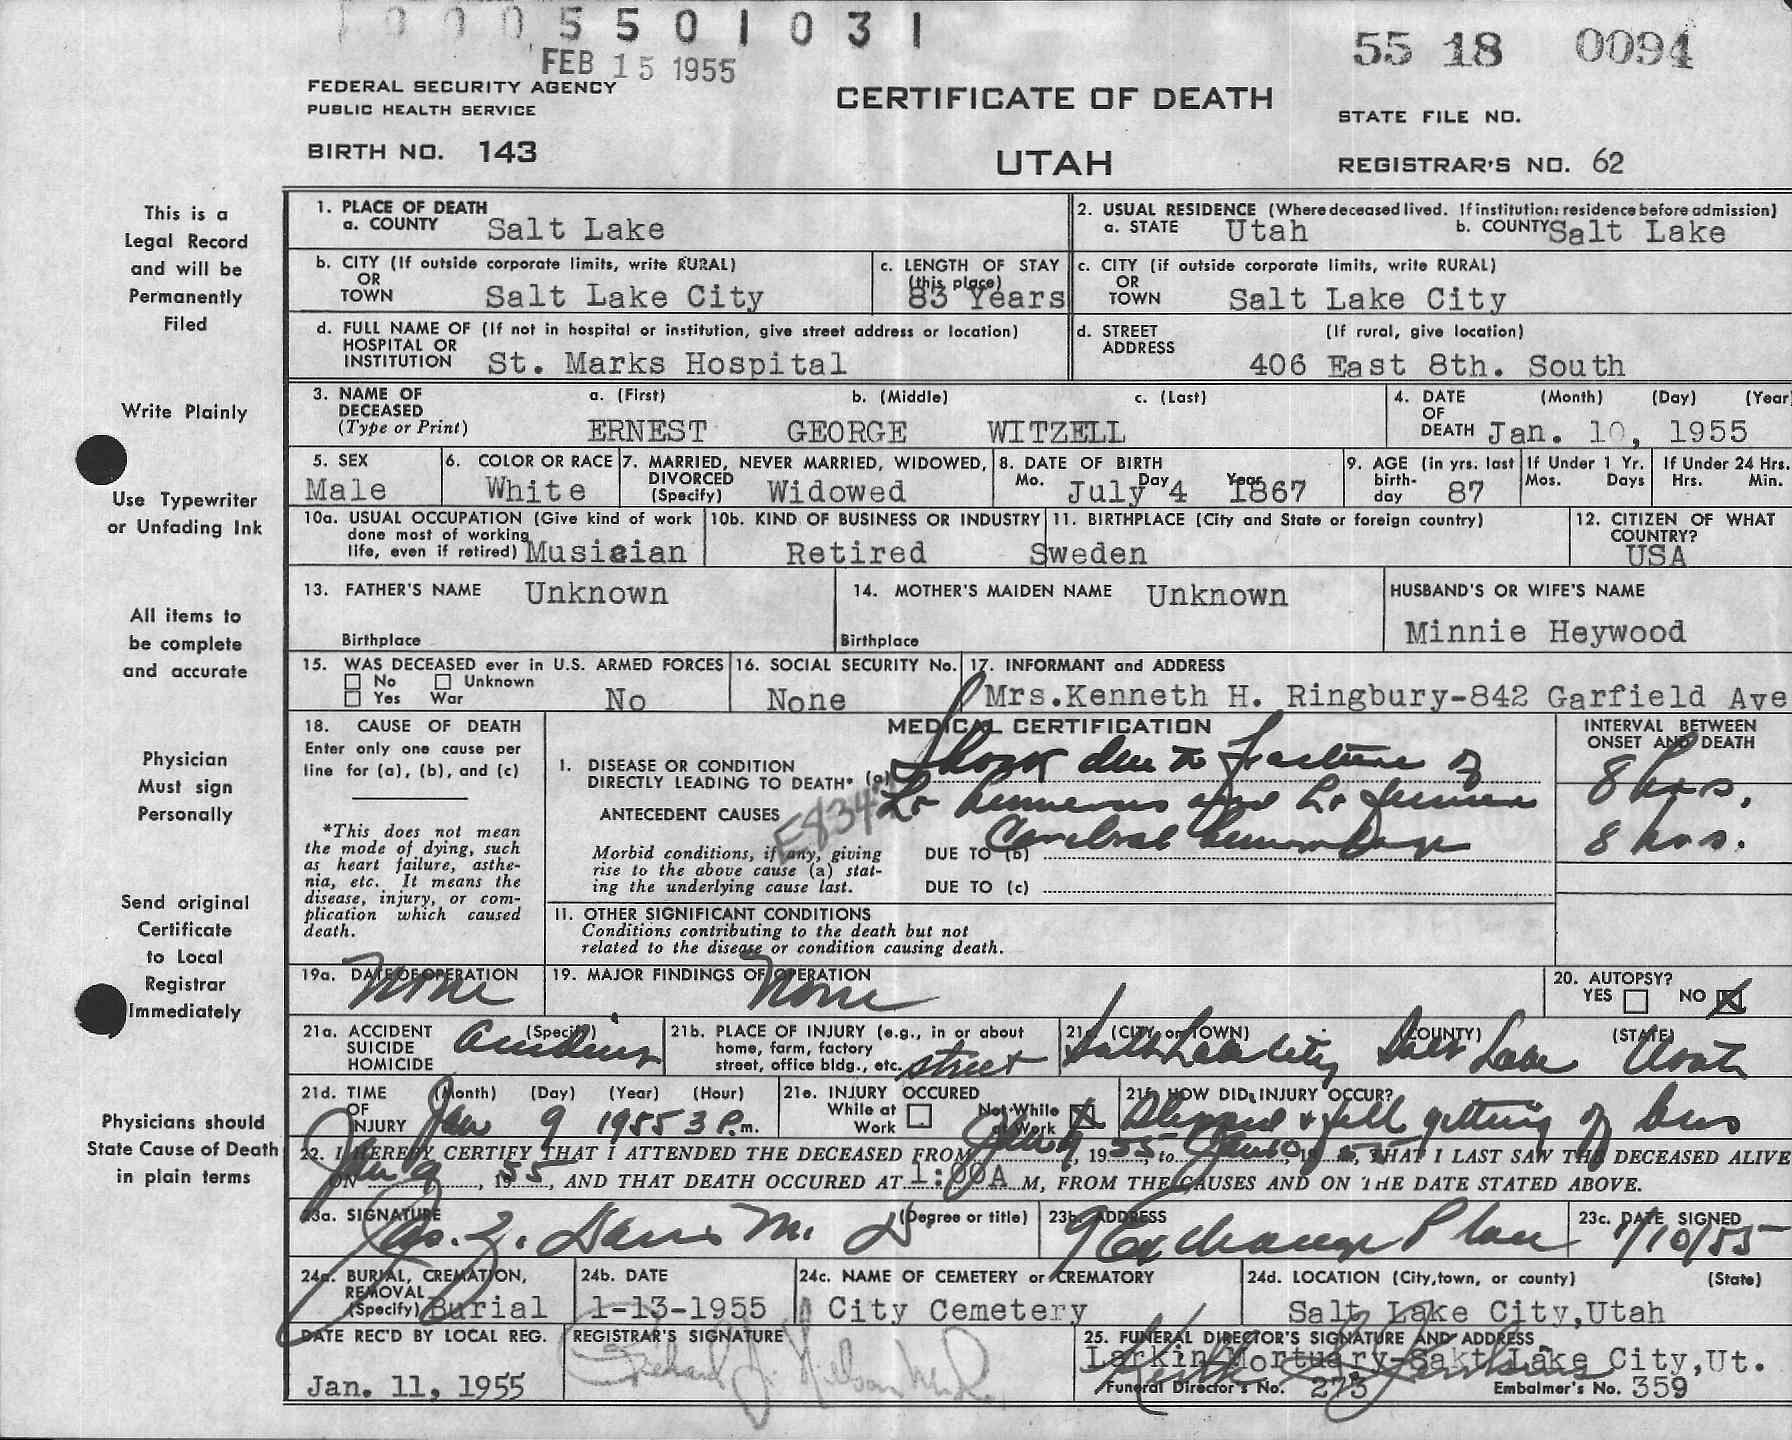 0 0 0 5 5 0 1 0 3 1
FEB 15 1955
55 18 0094
FEDERAL SECURITY AGENCY
PUBLIC HEALTH SERVICE
CERTIFICATE OF DEATH
STATE FILE NO.
BIRTH NO. 143
UTAH
REGISTRAR'S NO. 62
This is a
Legal Record
and will be
Permanently
Filed
Write Plainly
Use Typewriter
or Unfading Ink
All items to
be complete
and accurate
Physician
Must sign
Personally
Send original
Certificate
to Local
Registrar
Immediately
Physicians should
State Cause of Death
in plain terms
1. PLACE OF DEATH
a. COUNTY Salt Lake
2. USUAL RESIDENCE (Where deceased lived. If institution: residence before admission)
a. STATE Utah b. COUNTY Salt Lake
b. CITY (If outside corporate limits, write RURAL)
OR
TOWN Salt Lake City
c. LENGTH OF STAY
(this place)
83 Years
c. CITY (if outside corporate limits, write RURAL)
OR
TOWN Salt Lake City
d. FULL NAME OF (If not in hospital or institution, give street address or location)
HOSPITAL OR
INSTITUTION St. Marks Hospital
d. STREET (If rural, give location)
ADDRESS
406 East 8th. South
3. NAME OF a. (First) b. (Middle) c. (Last)
DECEASED
(Type or Print) ERNEST GEORGE WITZELL
4. DATE (Month) (Day) (Year)
OF
DEATH Jan. 10, 1955
5. SEX
Male
6. COLOR OR RACE
White
7. MARRIED, NEVER MARRIED, WIDOWED,
DIVORCED
(Specify) Widowed
8. DATE OF BIRTH
Mo. Day Year
July 4 1867
9. AGE (in yrs. last
birth-
day 87
If Under 1 Yr.
Mos. Days
If Under 24 Hrs.
Hrs. Min.
10a. USUAL OCCUPATION (Give kind of work
done most of working
life, even if retired) Musician
10b. KIND OF BUSINESS OR INDUSTRY
Retired
11. BIRTHPLACE (City and State or foreign country)
Sweden
12. CITIZEN OF WHAT
COUNTRY?
USA
13. FATHER'S NAME Unknown
Birthplace
14. MOTHER'S MAIDEN NAME Unknown
Birthplace
HUSBAND'S OR WIFE'S NAME
Minnie Heywood
15. WAS DECEASED ever in U.S. ARMED FORCES
No Unknown
Yes War No
16. SOCIAL SECURITY No.
None
17. INFORMANT and ADDRESS
Mrs.Kenneth H. Ringbury-842 Garfield Ave
18. CAUSE OF DEATH
Enter only one cause per
line for (a), (b), and (c)
*This does not mean
the mode of dying, such
as heart failure, asthe-
nia, etc. It means the
disease, injury, or com-
plication which caused
death.
MEDICAL CERTIFICATION
INTERVAL BETWEEN
ONSET AND DEATH
I. DISEASE OR CONDITION
DIRECTLY LEADING TO DEATH* (a) Shock due to fracture of
8 hrs.
ANTECEDENT CAUSES Lr humerus and Lr femur
E834
Morbid conditions, if any, giving
rise to the above cause (a) stat-
ing the underlying cause last.
DUE TO (b) Cerebral hemorrhage
8 hrs.
DUE TO (c)
II. OTHER SIGNIFICANT CONDITIONS
Conditions contributing to the death but not
related to the disease or condition causing death.
19a. DATE OF OPERATION
None
19. MAJOR FINDINGS OF OPERATION
None
20. AUTOPSY?
YES NO X
21a. ACCIDENT (Specify)
SUICIDE
HOMICIDE
Accident
21b. PLACE OF INJURY (e.g., in or about
home, farm, factory
street, office bldg., etc. street
21c. (CITY or TOWN) (COUNTY) (STATE)
Salt Lake City Salt Lake Utah
21d. TIME (Month) (Day) (Year) (Hour)
OF
INJURY Jan 9 1955 3 P.m.
21e. INJURY OCCURED
While at Work
Not While at Work X
21f. HOW DID INJURY OCCUR?
Slipped & fell getting of bus
22. I HEREBY CERTIFY THAT I ATTENDED THE DECEASED FROM Jan 9, 1955, to Jan 10, 1955, THAT I LAST SAW THE DECEASED ALIVE
ON Jan 9, 1955, AND THAT DEATH OCCURED AT 1:00A M, FROM THE CAUSES AND ON THE DATE STATED ABOVE.
23a. SIGNATURE (Degree or title)
Davis M. D
23b. ADDRESS
9 Exchange Place
23c. DATE SIGNED
1/10/55
24a. BURIAL, CREMATION,
REMOVAL
(Specify) Burial
24b. DATE
1-13-1955
24c. NAME OF CEMETERY or CREMATORY
City Cemetery
24d. LOCATION (City, town, or county) (State)
Salt Lake City,Utah
DATE REC'D BY LOCAL REG.
Jan. 11, 1955
REGISTRAR'S SIGNATURE
25. FUNERAL DIRECTOR'S SIGNATURE AND ADDRESS
Larkin Mortuary-Sakt Lake City,Ut.
Funeral Director's No. 273 Embalmer's No. 359